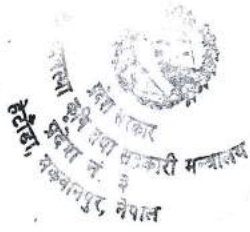 प्रदेश सरकार
कृषि तथा सहकारी मन्त्रालय
प्रदेश नं ३
हेटौंडा, मकवानपुर, नेपाल